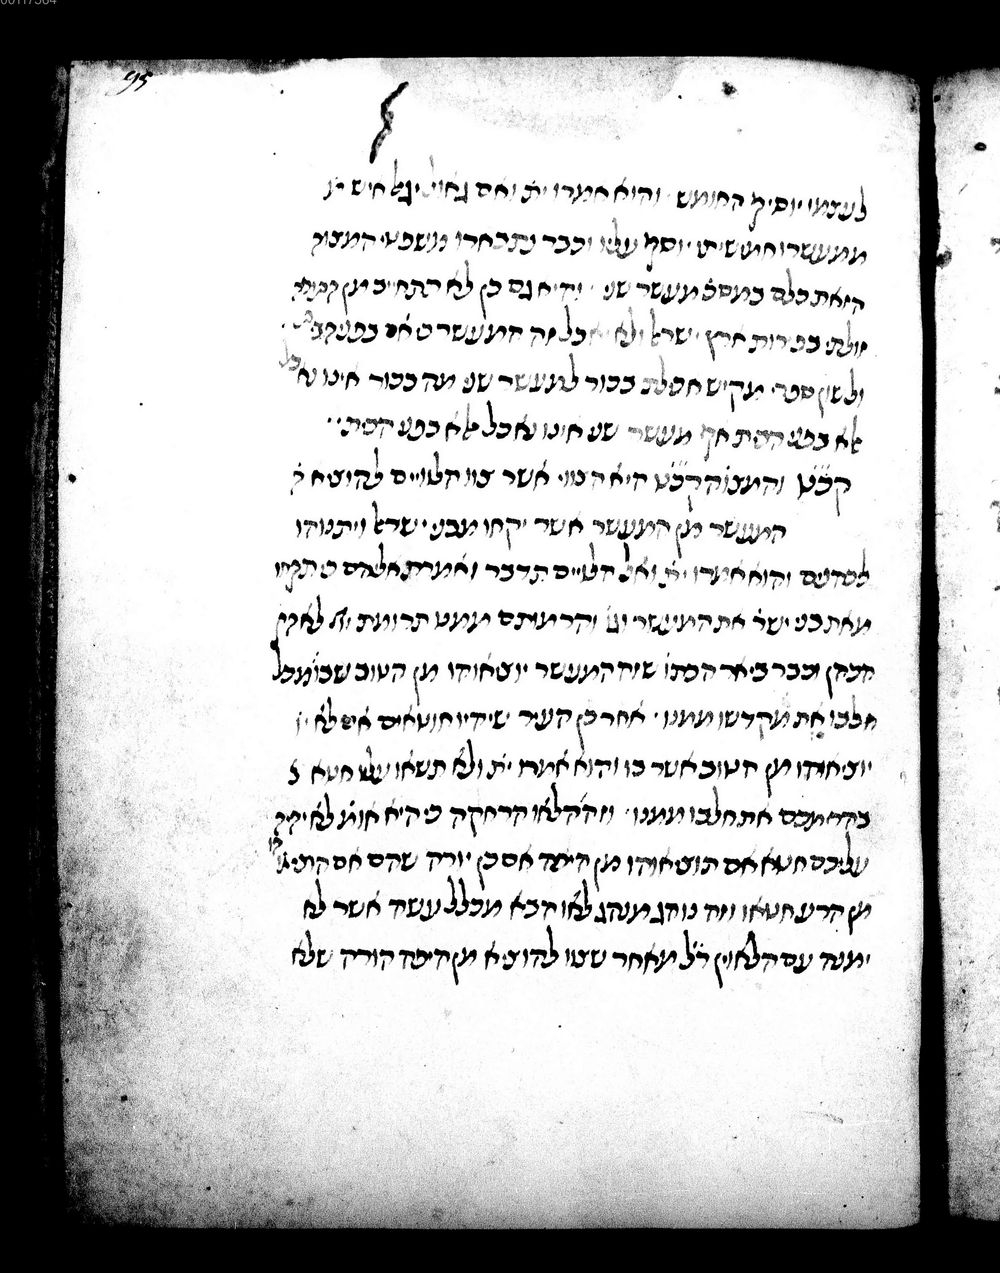 95
לעצמו יוסיף החומש והוא אמרו ית ואם גאול יגאל איש
ממעשרו חמשיתו יוסף עליו וכבר נתבארו משפטי המצוה
הזאת כלם במסכ מעשר שני והיא גם כן לא תתחייב מן
זולתי בפירות ארץ ישראל ולא יאכל זה המעשר כי אם בפני
ולשון ספרי מקיש אכילת בכור למעשר שני מה בכור אינו נאכל
אלא בפני הבית אף מעשר שני אינו נאכל אלא בפני הבית
קכט והמצוה הקכט היא הצווי אשר צוו הלויים להוציא
המעשר מן המעשר אשר יקחו מבני ישראל ויתנוהו
לכהנים והוא אמרו ית ואל הלויים תדבר ואמרת אליהם כי תקחו
מאת בני ישר את המעשר וגו והרמותם ממנו תרומת יי לאהרן
הכהן וכבר ביאר הכתו שזה המעשר יוציאוהו מן הטוב שבו מכל
חלבו את מקדשו ממנו אחר כן העיד שיהיו חוטאים אם לא
יוציאוהו מן הטוב אשר בו והוא אמרו ית ולא תשאו עליו חטא
בהרימכם את חלבו ממנו וזה הלאו הרחקה כי היא אומ לא יהיה
עליכם חטא אם תוציאוהו מן היפה אם כן יורה שהם אם הוציאוהו
מן הרע חטאו וזה נוהג מנהג לאו הבא מכלל עשה אשר לא
ימנה עם הלאוין רל מאחר שצוו להוציא מן היפה הורה שלא